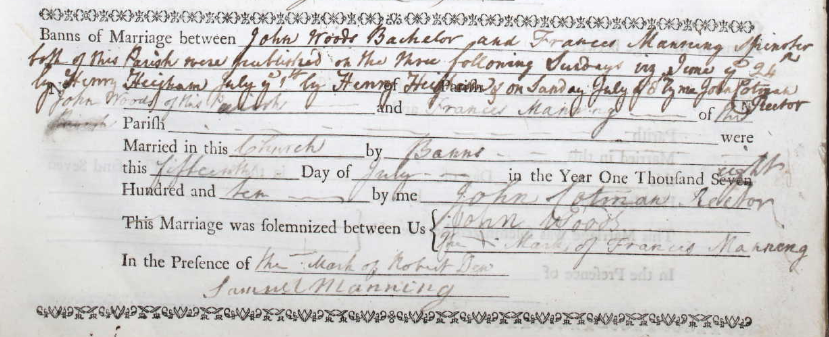 Banns of Marriage between John Woods Bachelor and Frances Manning Spinster
both of this Parish were published on the three following Sundays viz June ye 24th
by Henry Heigham July ye 1st by Henry Heigham & on Sunday July ye 8 by me John Cotman Rector
John Woods of this Parish and Frances Manning of this
Parish were
Married in this Church by Banns
this fifteenth Day of July in the Year One Thousand Seven eight
Hundred and ten by me John Cotman Rector
This Marriage was solemnized between Us John Woods
The X Mark of Frances Manning
In the Presence of The Mark of Robert Dew
Samuel Manning